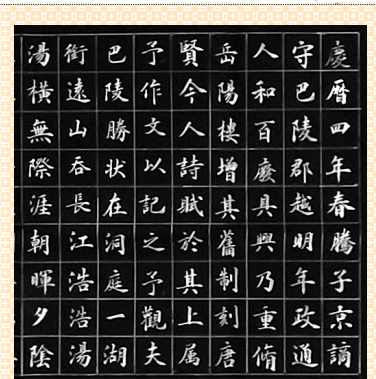 慶曆四年春滕子京謫
守巴陵郡越明年政通
人和百廢具興乃重脩
岳陽樓增其舊制刻唐
賢今人詩賦於其上属
予作文以記之予觀夫
巴陵勝狀在洞庭一湖
銜遠山吞長江浩浩湯
湯橫無際涯朝暉夕陰